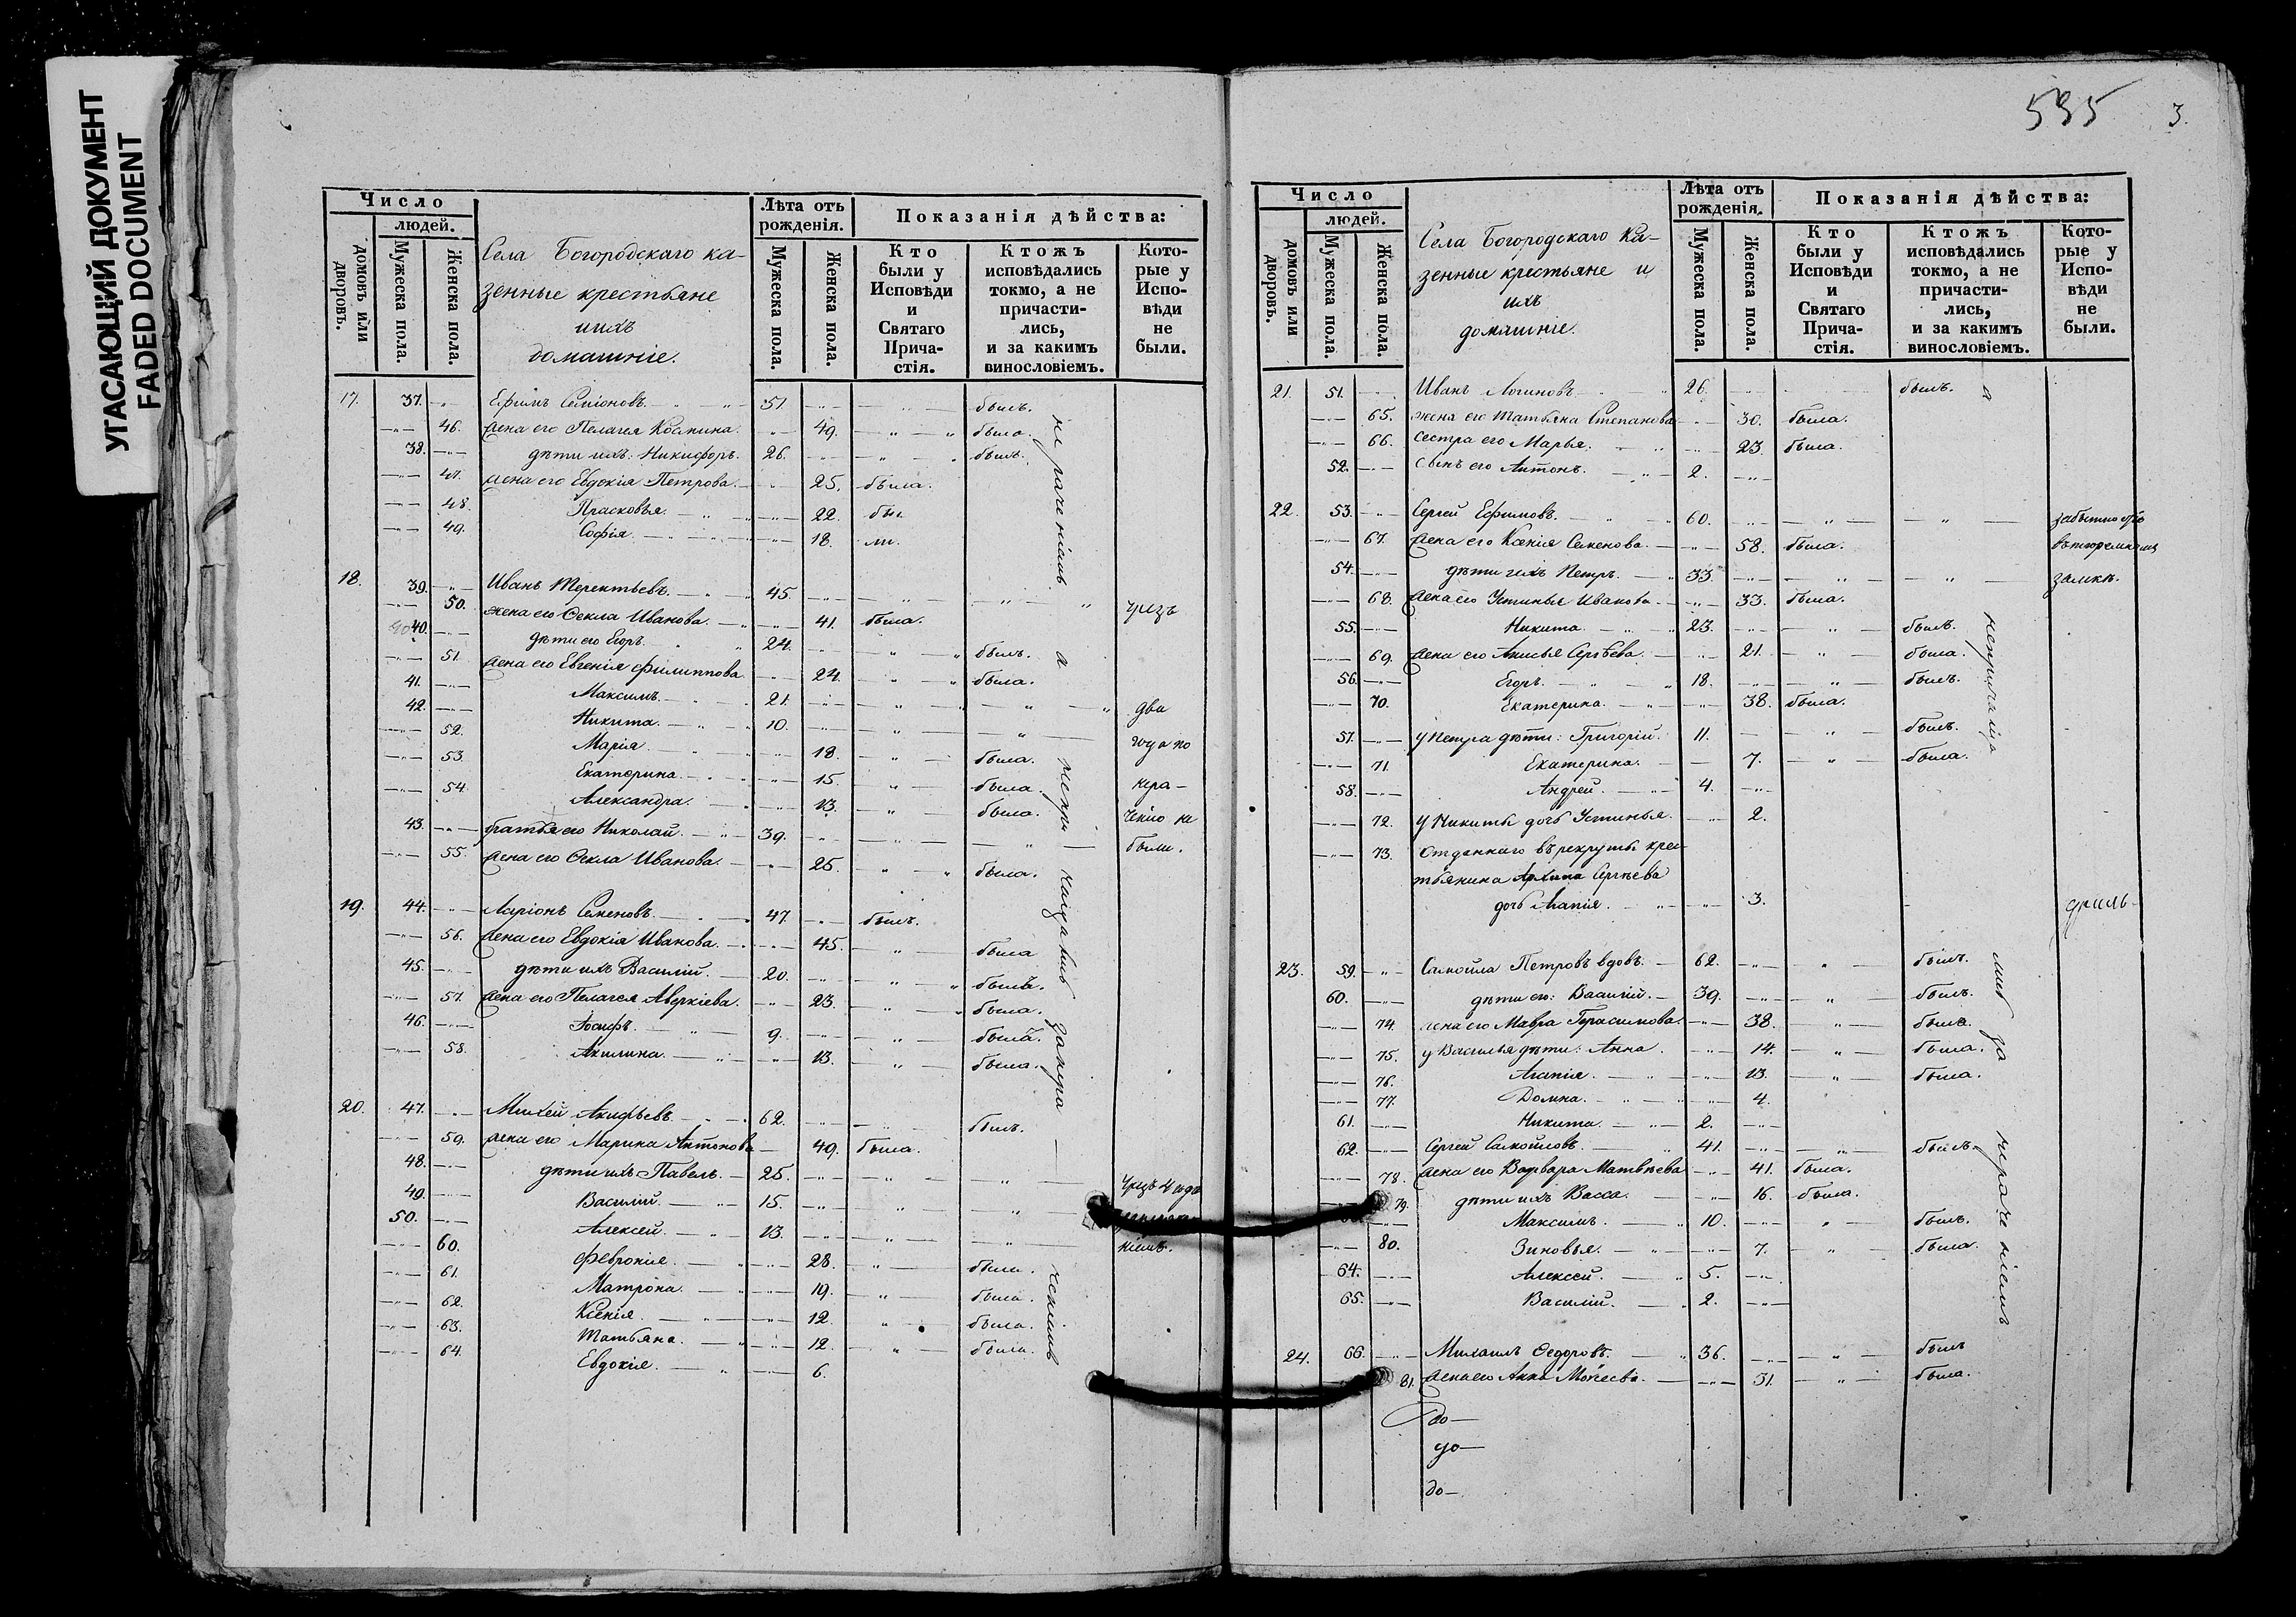 УГАСАЮЩИЙ ДОКУМЕНТ
FADED DOCUMENT
Число
людей.
домовъ или дворовъ.
Мужеска пола.
Женска пола.
Села Богородскаго ка-
зенные крестьяне
и ихъ
домашніе.
Лѣта отъ рожденія.
Мужеска пола.
Женска пола.
Показанія дѣйства:
Кто были у Исповѣди и Святаго Прича-стія.
Ктожъ исповѣдались токмо, а не причасти-лись, и за какимъ винословіемъ.
Кото-рые у Испо-вѣди не были.
17. 37. Ефимъ Семіоновъ. 51. былъ.
46. жена его Пелагея Козмина. 49. была.
38. дѣти ихъ: Никифоръ. 26. былъ.
47. жена его Евдокія Петрова. 25. была.
48. Прасковья. 22. бы
49. Софія. 18. ли.
18. 39. Иванъ Терентьевъ. 45. чрезъ
50. жена его Ѳекла Иванова. 41. была.
40. дѣти его Егоръ. 24. былъ.
51. жена его Евгенія Филиппова 24. была.
41. Максимъ. 21. два
42. Никита. 10.
52. Марія. 18. была. года по
53. Екатерина. 15. была. нера-
54. Александра. 13. была. ченію не
43. братъ его Николай. 39. были.
55. жена его Ѳекла Иванова. 25. была.
19. 44. Ларіонъ Семеновъ. 47. былъ.
56. жена его Евдокія Иванова. 45. была
45. дѣти ихъ Василій. 20. былъ.
57. жена его Пелагея Аверкіева. 23. была.
46. Іосифъ. 9. былъ.
58. Акилина. 13. была.
20. 47. Михей Акифьевъ. 62. былъ.
59. жена его Марина Антонова 49. была.
48. дѣти ихъ Павелъ. 25. чрезъ 4 года
49. Василій. 15.
50. Алексей. 13. ніемъ.
60. Февронія. 28. была.
61. Матрона. 19. была.
62. Ксенія. 12. была.
63. Татьяна. 12. была.
64. Евдокія. 6.
нераченіемъ
а
535
3.
Число
людей.
домовъ или дворовъ.
Мужеска пола.
Женска пола.
Села Богородскаго ка-
зенные крестьяне и
ихъ
домашніе.
Лѣта отъ рожденія.
Мужеска пола.
Женска пола.
Показанія дѣйства:
Кто были у Исповѣди и Святаго Прича-стія.
Ктожъ исповѣдались токмо, а не причасти-лись, и за какимъ винословіемъ.
Кото-рые у Испо-вѣди не были.
21. 51. Иванъ Логиновъ 26. былъ.
65. жена его Татьяна Степанова 30. была.
66. сестра его Марья. 23. была.
52. сынъ его Антонъ. 2.
22. 53. Сергей Ефимовъ. 60.
67. жена его Ксенія Семенова. 58. была.
54. дѣти ихъ Петръ. 33. замкѣ.
68. жена его Устинья Иванова. 33. была.
55. Никита. 23. былъ.
69. жена его Анисья Сергѣева. 21. была.
56. Егоръ. 18. былъ.
70. Екатерина. 38. была.
57. у Петра дѣти: Григорій. 11. былъ.
71. Екатерина. 7. была.
58. Андрей. 4.
72. у Никиты дочь Устинья. 2.
73. Отданнаго въ рекруты крес-
тьянина Архипа Сергѣева
дочь Агапія. 3.
23. 59. Самойла Петровъ вдовъ. 62. былъ.
60. дѣти его: Василій. 39. былъ.
74. жена его Мавра Герасимова. 38. была.
75. у Василья дѣти: Анна. 14. была.
76. Агапія. 13. была.
77. Домна. 4.
61. Никита. 2.
62. Сергей Самойловъ. 41. былъ.
78. жена его Варвара Матвѣева 41. была.
79. дѣти ихъ Васса. 16. была.
Максимъ. 10. былъ.
80. Зиновья. 7. была.
64. Алексей. 5.
65. Василій. 2.
24. 66. Михаилъ Ѳедоровъ. 36. былъ
81. жена его Анна Моѵсеева. 31. была.
а
нераченіемъ
до-
до-